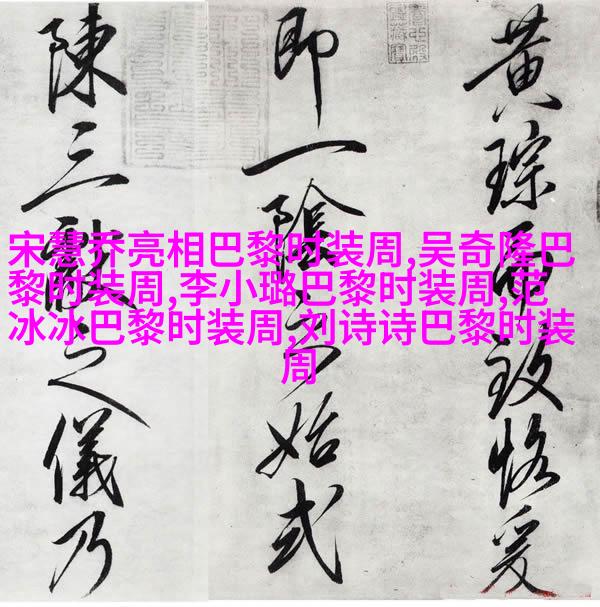 黄琮致恪爰
即一陰之始式
陳三獻之儀乃
宋慧乔亮相巴黎时装周,吴奇隆巴
黎时装周,李小璐巴黎时装周,范
冰冰巴黎时装周,刘诗诗巴黎时装
周